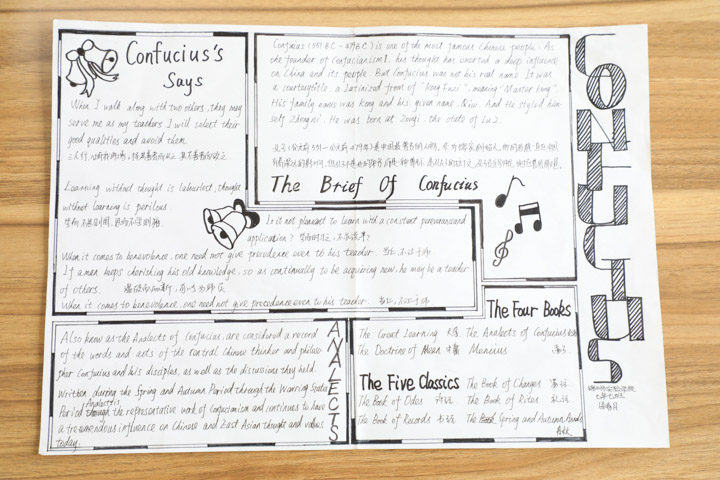 Confucius's
Says
When I walk along with two others, they may
serve me as my teachers. I will select their
good qualities and avoid them.
Learning without thought is labour lost, thought
without learning is perilous
Confucius (551 BC - 479 BC) is one of the most famous Chinese people. As
the founder of Confucianism, his thought has exerted a deep influence
on China and its people. But Confucius was not his real name. It was
a courtesy title, a Latinized from of "kong Fuzi", meaning "Master kong".
This family name was kong and his given name, Qiu. And He styled him-
self Zhongni. He was born at Zouyi, the state of Lu2.
The Brief Of Confucius
Is it not pleasant to learn with a constant perseverance and
application?
When it comes to benevolence, one need not give precedence even to his teacher. 当仁,不让于师
If a man keeps cherishing his old knowledge, so as continually to be acquiring new, he may be a teacher
of others. 温故而知新,可以为师矣
When it comes to benevolence, one need not give precedence even to his teacher. 当仁,不让于师
Also know as the Analects of Confucius, are considered a record
of the words and acts of the central Chinese thinker and philoso-
pher Confucius and his disciples, as well as the discussions they held.
Written during the Spring and Autumn Period through the Warring States
Period Analects the representative work of Confucianism and continues to have
a tremendous influence on Chinese and East Asian thought and values
today.
ANALECTS
The Four Books
The Great Learning 大学 The Analects of Confucius 论语
The Doctrine of Mean 中庸 Mencius 孟子
The Five Classics The Book of Changes 易经
The Book of Odes 诗经 The Book of Rites 礼经
The Book of Records 书经 The Spring and Autumn Annals
春秋
CONFUCIUS